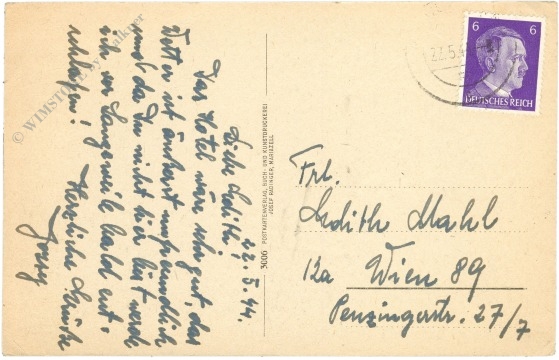 22.5.44.
Liebe Edith!
Das Hotel wäre sehr gut, das
Wetter ist äußerst unfreundlich
und da Du nicht hier bist werde
ich vor Langeweile bald ent-
schlafen! Herzliche Grüße
3006 POSTKARTENVERLAG, BUCH- UND KUNSTDRUCKEREI
JOSEF RADINGER, MARIAZELL
22.5.4
6 6
DEUTSCHES REICH
Frl.
Edith Mahl
12a Wien 89
Penzingerstr. 27/7
© WIMSTORE by Falkner